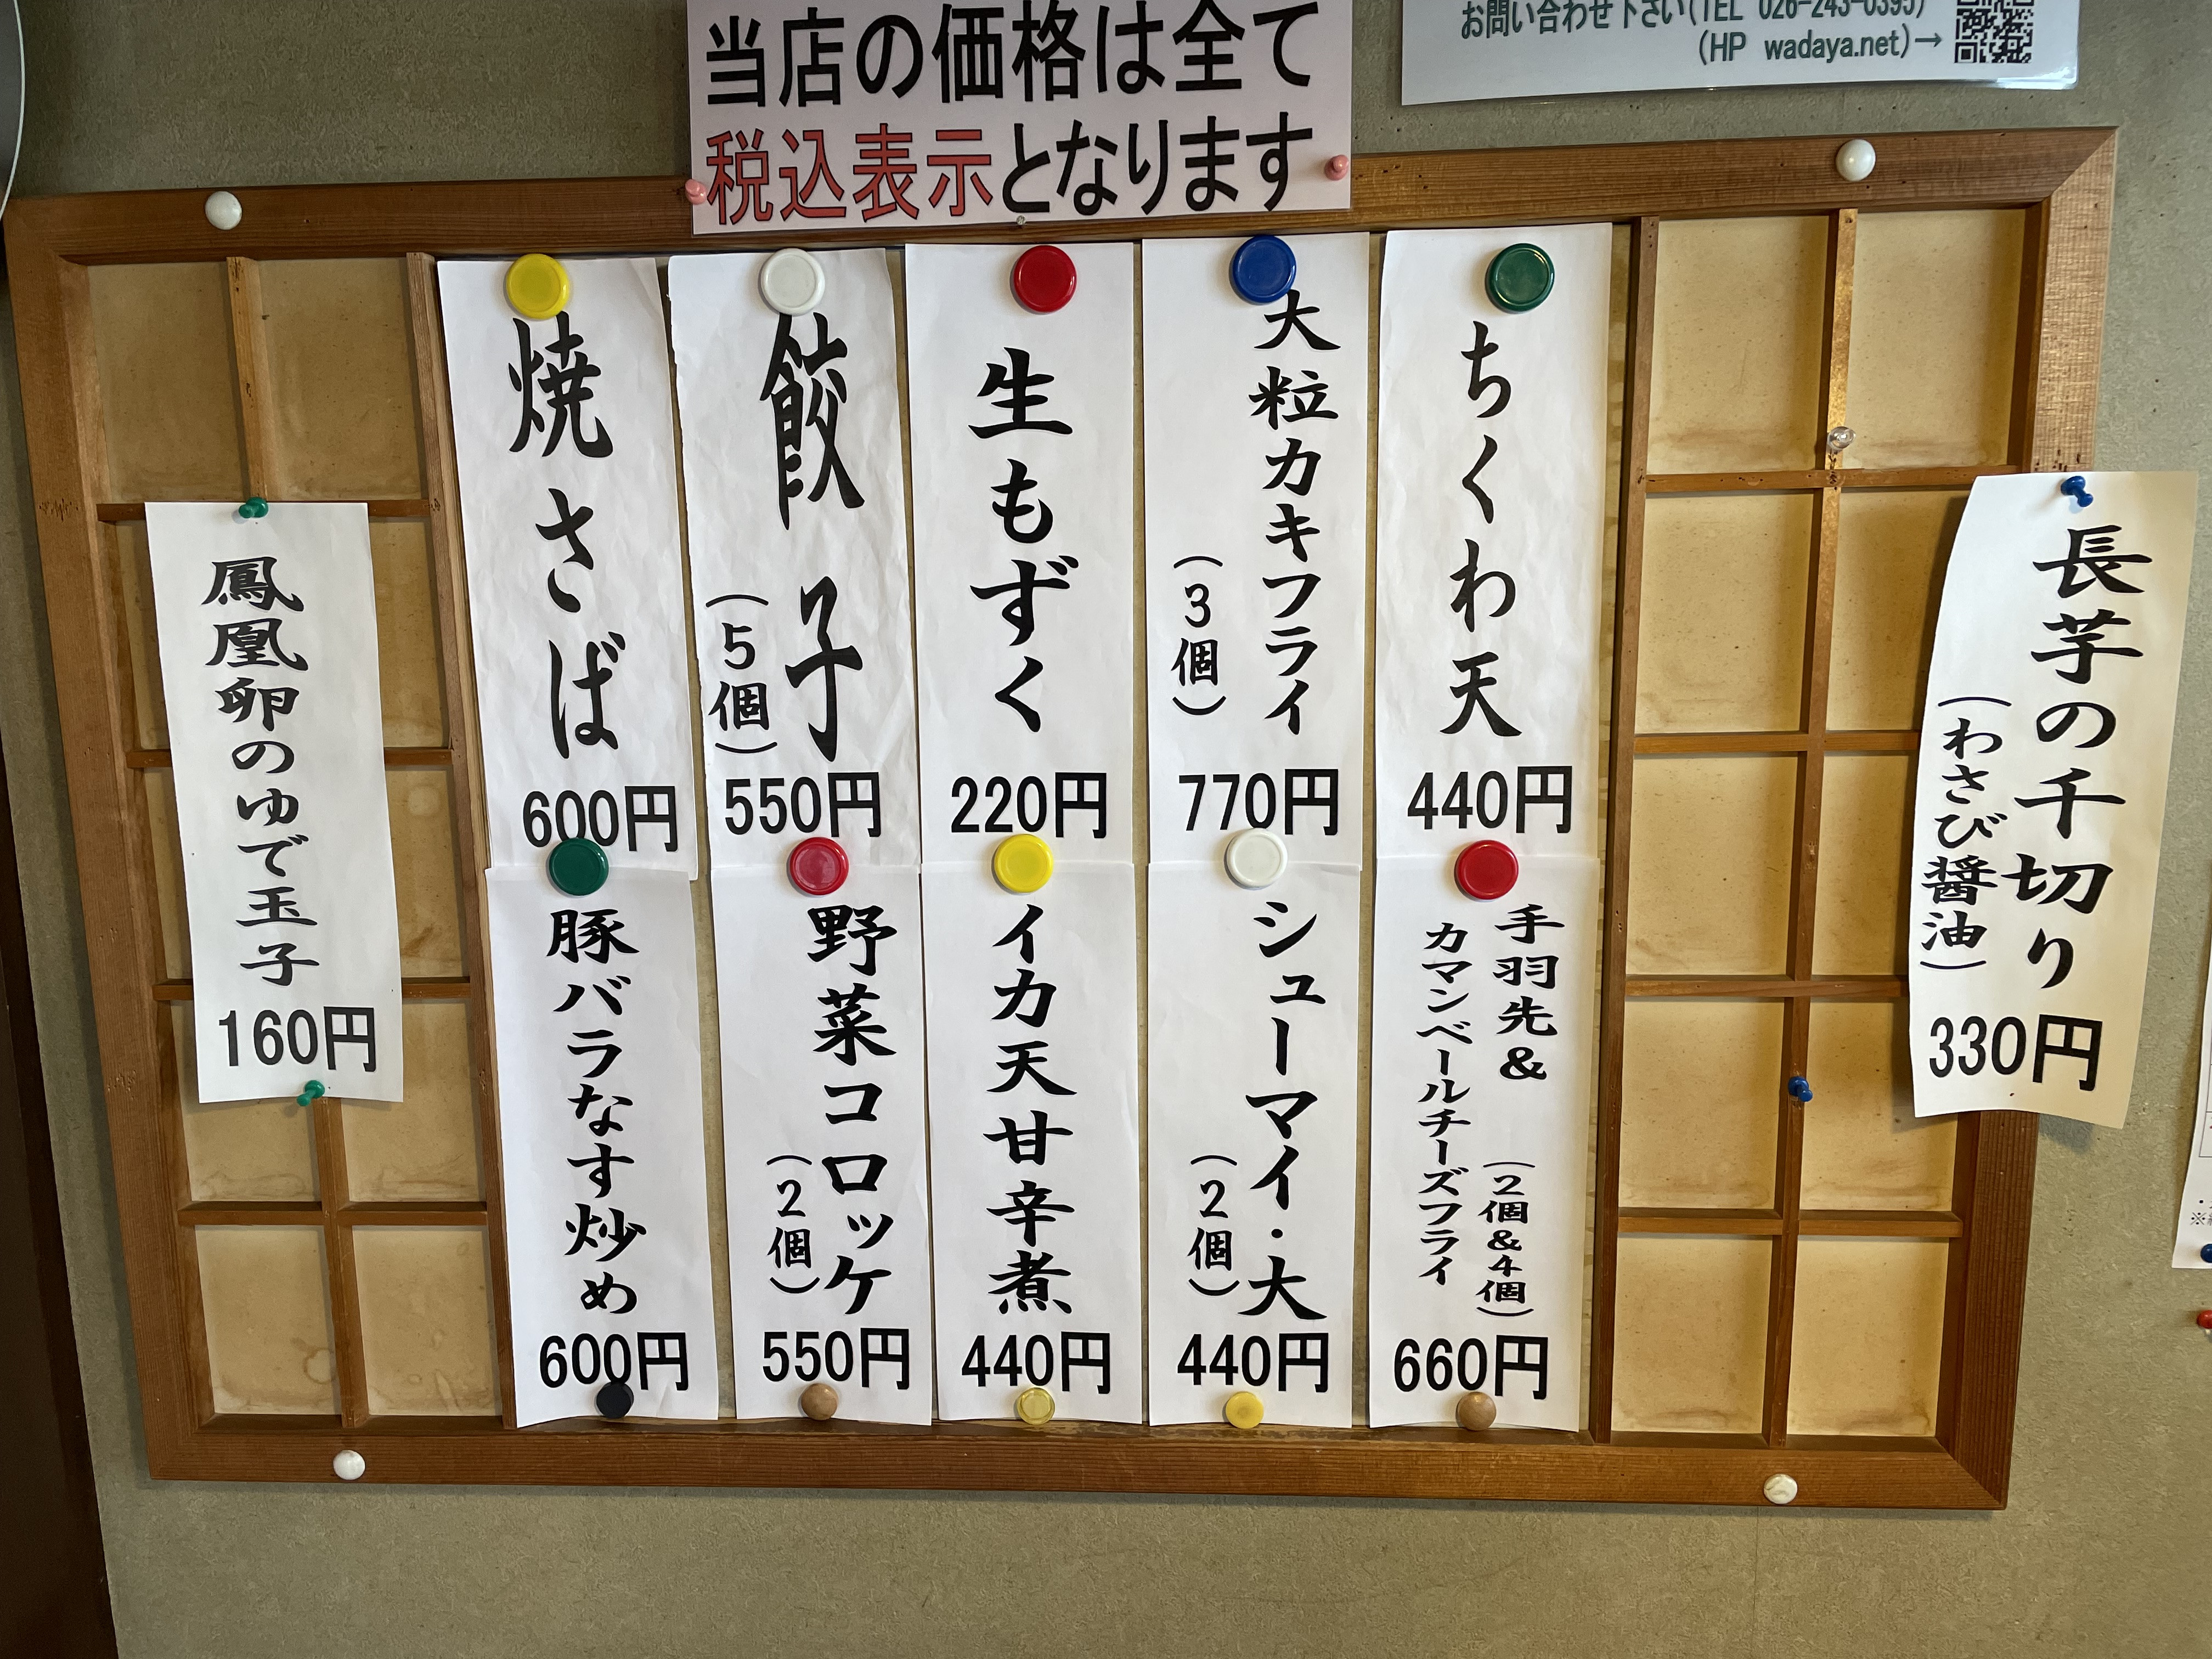 当店の価格は全て
税込表示となります
お問い合わせ下さい(TEL 026-243-0395)
(HP wadaya.net)→
長芋の千切り
(わさび醤油)
330円
ちくわ天
440円
大粒カキフライ
(3個)
770円
生もずく
220円
餃子
(5個)
550円
焼さば
600円
手羽先&
(2個&4個)
カマンベールチーズフライ
660円
シューマイ・大
(2個)
440円
イカ天甘辛煮
440円
野菜コロッケ
(2個)
550円
豚バラなす炒め
600円
鳳凰卵のゆで玉子
160円